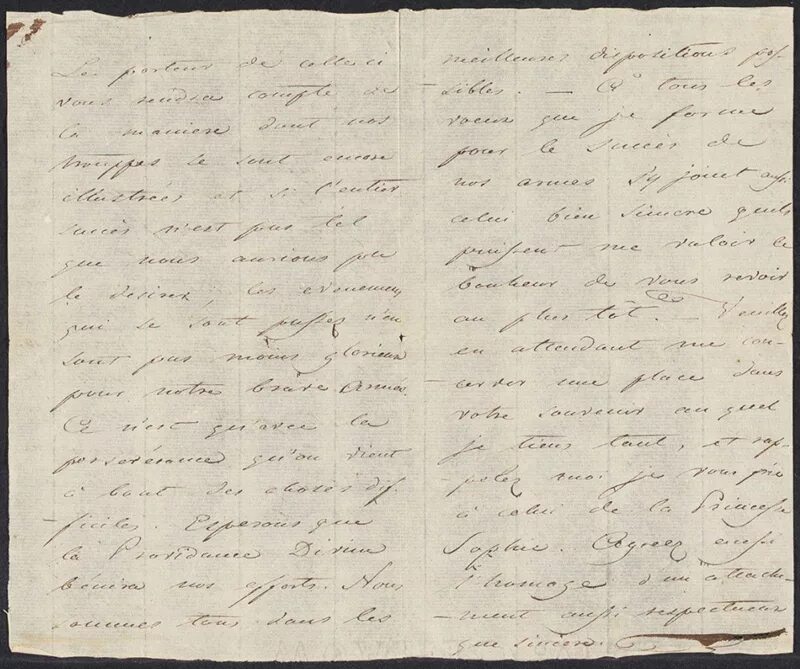 Le porteur de celle ci
vous rendra compte de
la maniere dont nos
trouppes se sont encore
illustrées et si l'entier
succès n'est pas tel
que nous aurions pu
le desirer, les evenemens
qui se sont passez n'en
sont pas moins glorieux
pour notre brave Armée.
Ce n'est qu'avec la
persevérance qu'on vient
à bout des choses dif-
ficiles. Esperons que
la Providance Divine
bénira nos efforts. Nous
sommes tous dans les
meilleures dispositions pos-
sibles. — A tous les
voeux que je forme
pour le succès de
nos armes s'y joint aussi
celui bien sincere qu'ils
puissent me valoir le
bonheur de vous revoir
au plus tôt. — Veuillez
en attendant me con-
server une place dans
votre souvenir au quel
je tiens tant, et rap-
pelez moi je vous prie
à celui de la Princesse
Sophie. Agreez aussi
l'homage d'un attache-
ment aussi respectueux
que sincère.